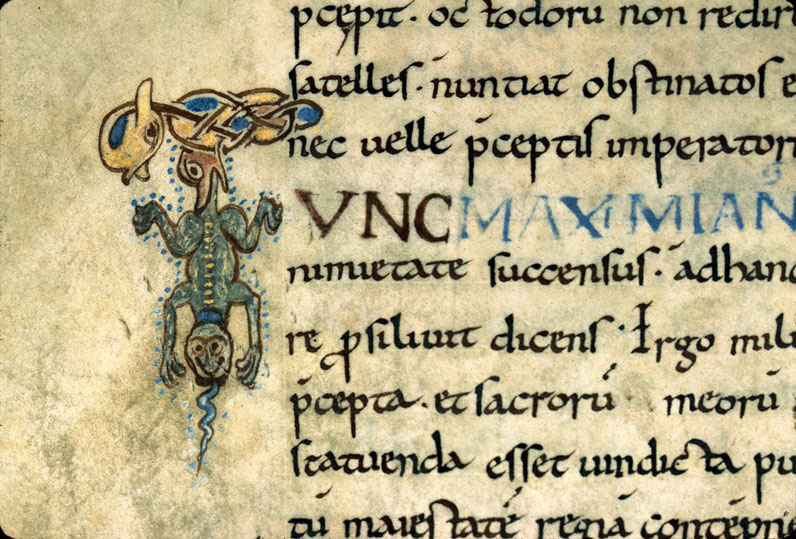 p̄cepit · oc̄ todorū non redir
satelles · nuntiat obstinatos e
nec uelle p̄ceptis imperatori
VNC MAXIMIAN
nimietate succensus · adhanc
re prosiliuit dicens · Irgo mili
p̄cepta · et sacrorū meorū
statuenda esset uindicta pu
tū maiestatē regiā contēpne